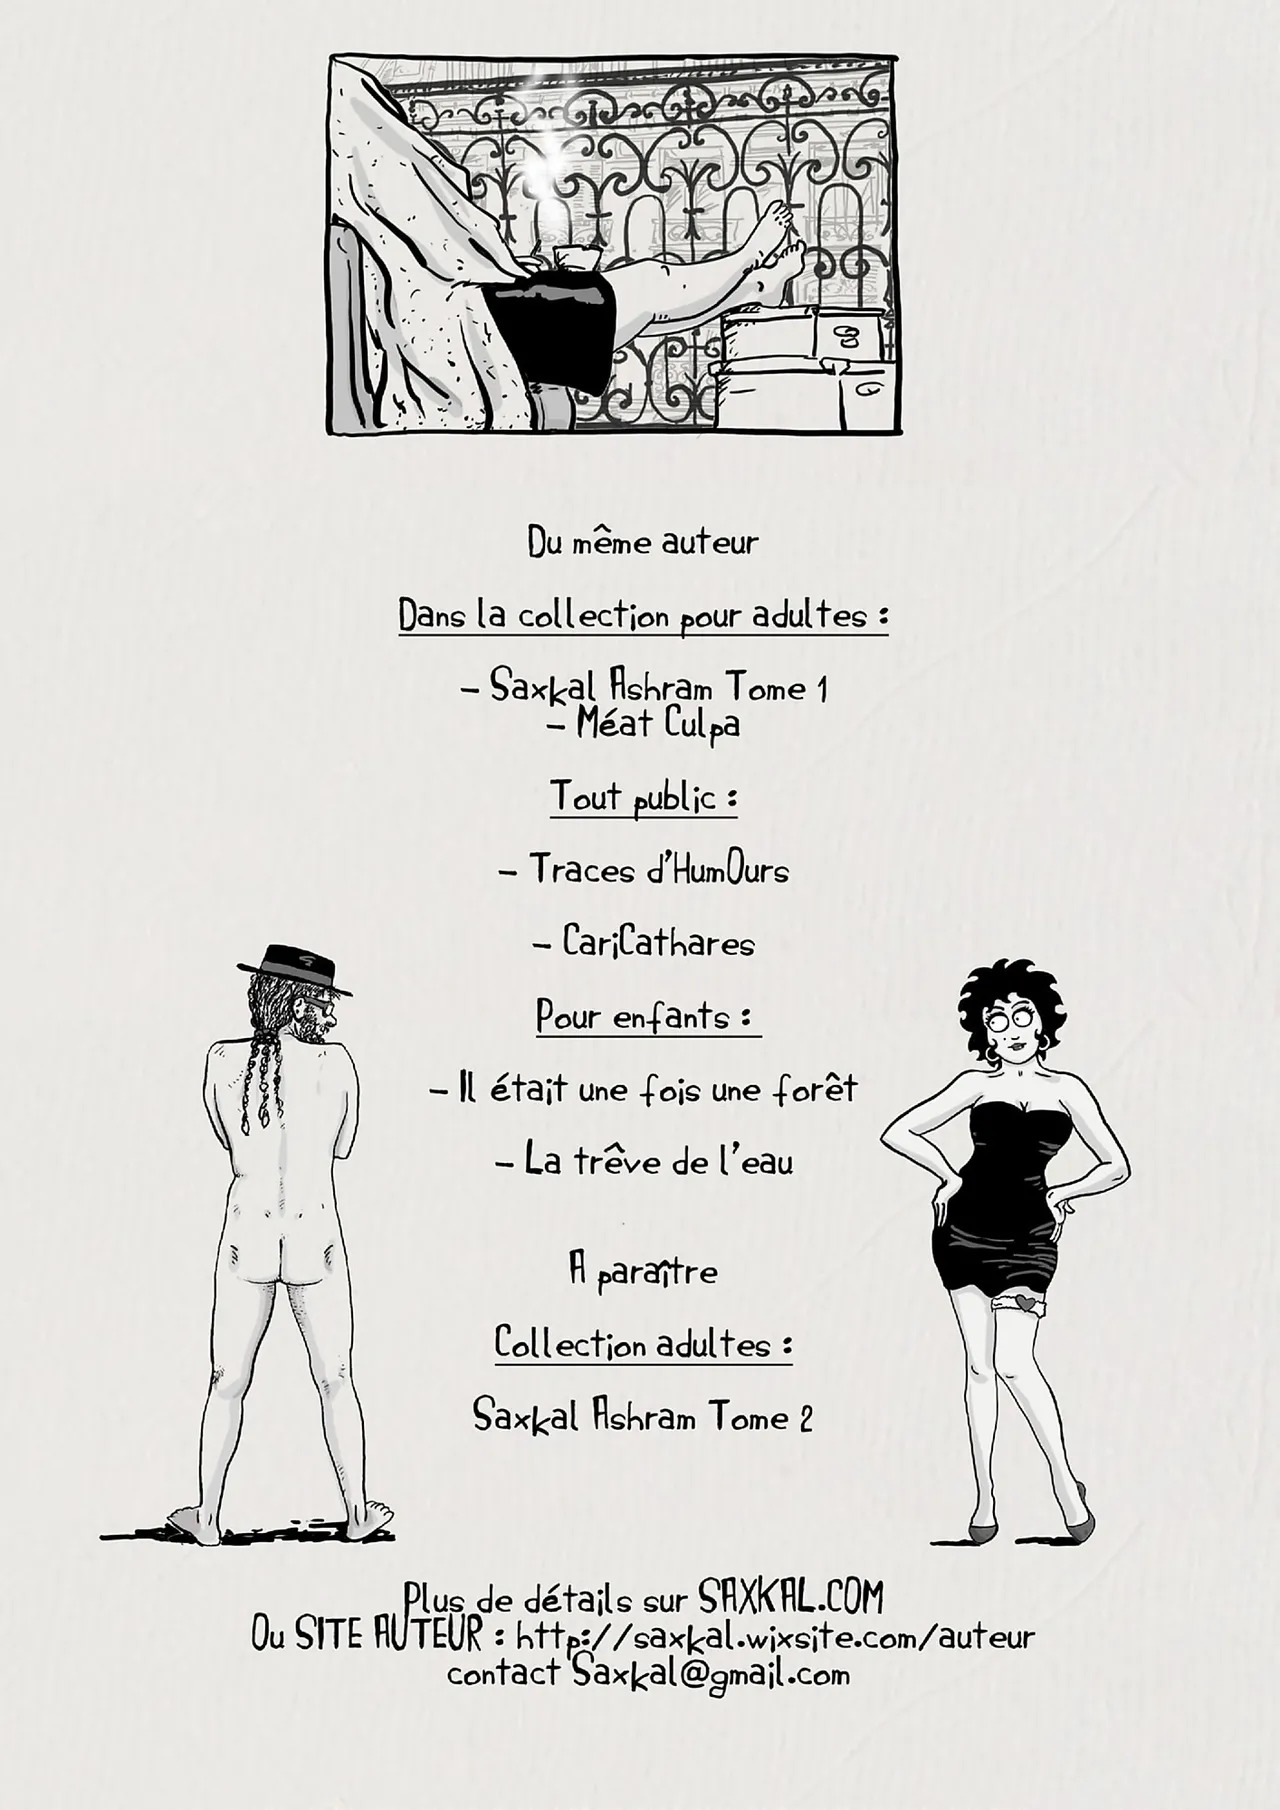 Du même auteur
Dans la collection pour adultes :
– Saxkal Ashram Tome 1
– Méat Culpa
Tout public :
– Traces d'HumOurs
– CariCathares
Pour enfants :
– Il était une fois une forêt
– La trêve de l'eau
A paraître
Collection adultes :
Saxkal Ashram Tome 2
Plus de détails sur SAXKAL.COM
Ou SITE AUTEUR : http://saxkal.wixsite.com/auteur
contact Saxkal@gmail.com